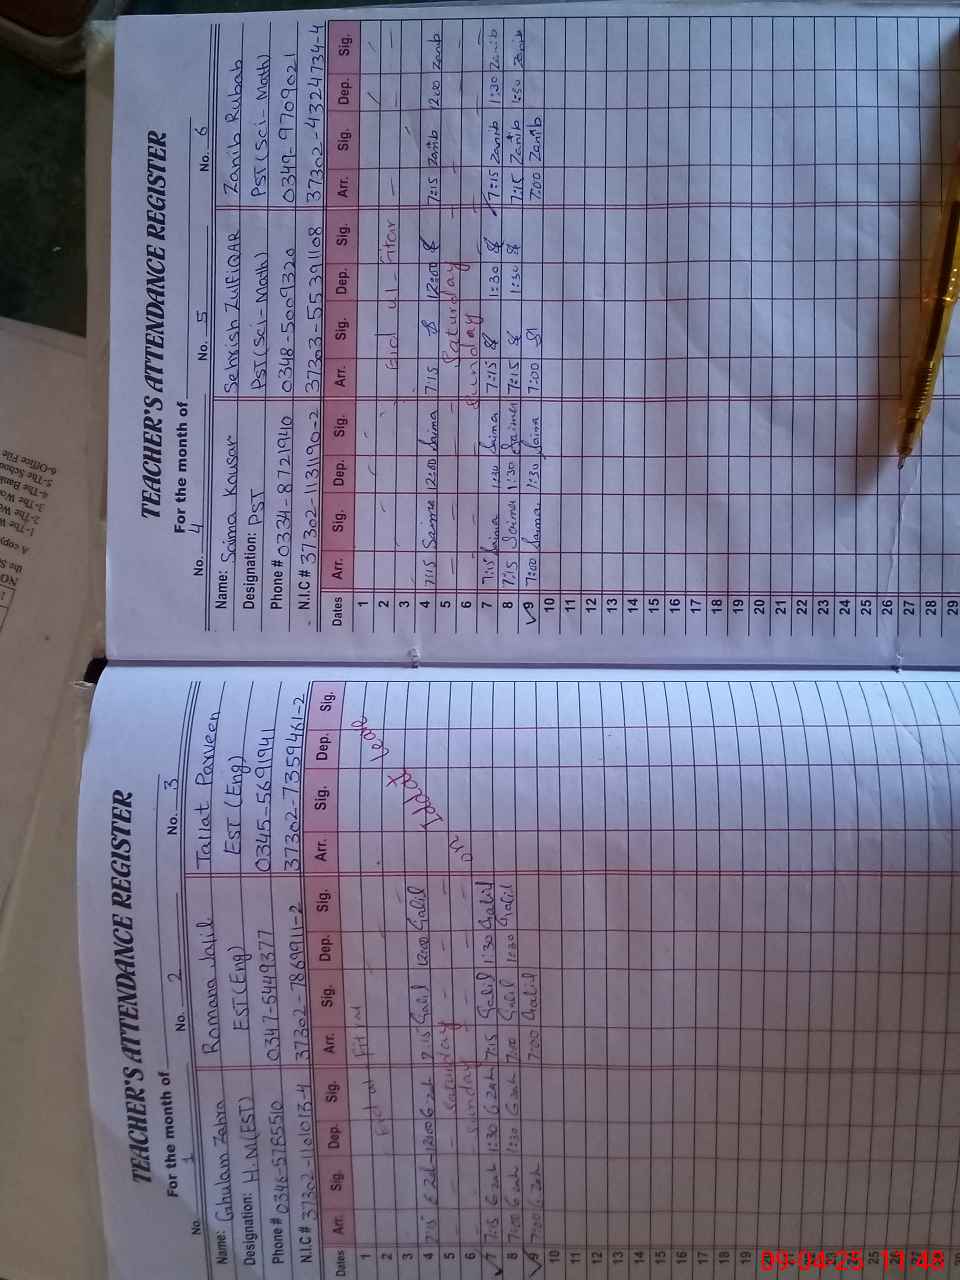 TEACHER'S ATTENDANCE REGISTER
For the month of
No. 1 No. 2 No. 3
Name: Ghulam Zahra Ramana Jalil Tallat Parveen
Designation: H.M(EST) EST(Eng) EST (Eng)
Phone # 0346-5785510 0347-5449377 0345-5691941
N.I.C # 37302-1101013-4 37302-7869911-2 37302-7359461-2
Dates Arr. Sig. Dep. Sig. Arr. Sig. Dep. Sig. Arr. Sig. Dep. Sig.
1
2 Eid ul Fitral
3
4 7:15 G Zah 12:00 G-zah 7:15 Galil 12:00 Galil
5 Saturday
6 Sunday on Iddat leave
✓7 7:15 G zah 1:30 G zah 7:15 Galil 1:30 Galil
8 7:00 G zah 1:30 G zah 7:00 Galil 1:30 Galil
✓9 7:00 G zah 7:00 Galil
10
11
12
13
14
15
16
17
18
19
20
25
26
27
TEACHER'S ATTENDANCE REGISTER
For the month of
No. 4 No. 5 No. 6
Name: Saima Kousar Sehrish ZulFiQAR Zanib Rubab
Designation: PST PST(Sci-Math) PST(Sci-Math)
Phone # 0334-8721940 0348-5009320 0349-9709021
N.I.C # 37302-1131190-2 37303-5539110 8 37302-4324734-4
Dates Arr. Sig. Dep. Sig. Arr. Sig. Dep. Sig. Arr. Sig. Dep. Sig.
1
2
3 Eid ul-Fitar
4 7:15 Saima 12:00 Saima 7:15 12:00 7:15 Zanib 12:00 Zanib
5 Saturday
6 Sunday
7 7:15 Saima 1:30 Saima 7:15 1:30 7:15 Zanib 1:30 Zanib
8 7:15 Saima 1:30 Saima 7:15 1:30 7:15 Zanib 1:30 Zanib
✓9 7:00 Saima 1:30 Saima 7:00 7:00 Zanib
10
11
12
13
14
15
16
17
18
19
20
21
22
23
24
25
26
27
28
29
6-Office File
09-04-25 11:48